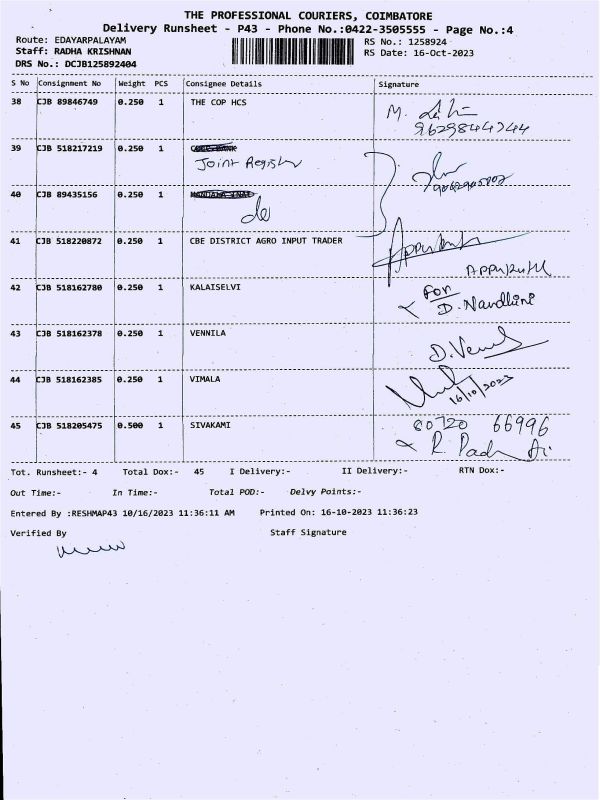 THE PROFESSIONAL COURIERS, COIMBATORE
Delivery Runsheet - P43 - Phone No.:0422-3505555 - Page No.:4
Route: EDAYARPALAYAM
RS No.: 1258924
Staff: RADHA KRISHNAN
RS Date: 16-Oct-2023
DRS No.: DCJB125892404
S No Consignment No Weight PCS Consignee Details Signature
38 CJB 89846749 0.250 1 THE COP HCS M.
9629844744
39 CJB 518217219 0.250 1
Joint Register
40 CJB 89435156 0.250 1
do
41 CJB 518220872 0.250 1 CBE DISTRICT AGRO INPUT TRADER
42 CJB 518162780 0.250 1 KALAISELVI For
D. Nandhini
43 CJB 518162378 0.250 1 VENNILA
44 CJB 518162385 0.250 1 VIMALA
16/10/2023
45 CJB 518205475 0.500 1 SIVAKAMI 80720 66996
R.
Tot. Runsheet:- 4 Total Dox:- 45 I Delivery:- II Delivery:- RTN Dox:-
Out Time:- In Time:- Total POD:- Delvy Points:-
Entered By :RESHMAP43 10/16/2023 11:36:11 AM Printed On: 16-10-2023 11:36:23
Verified By Staff Signature